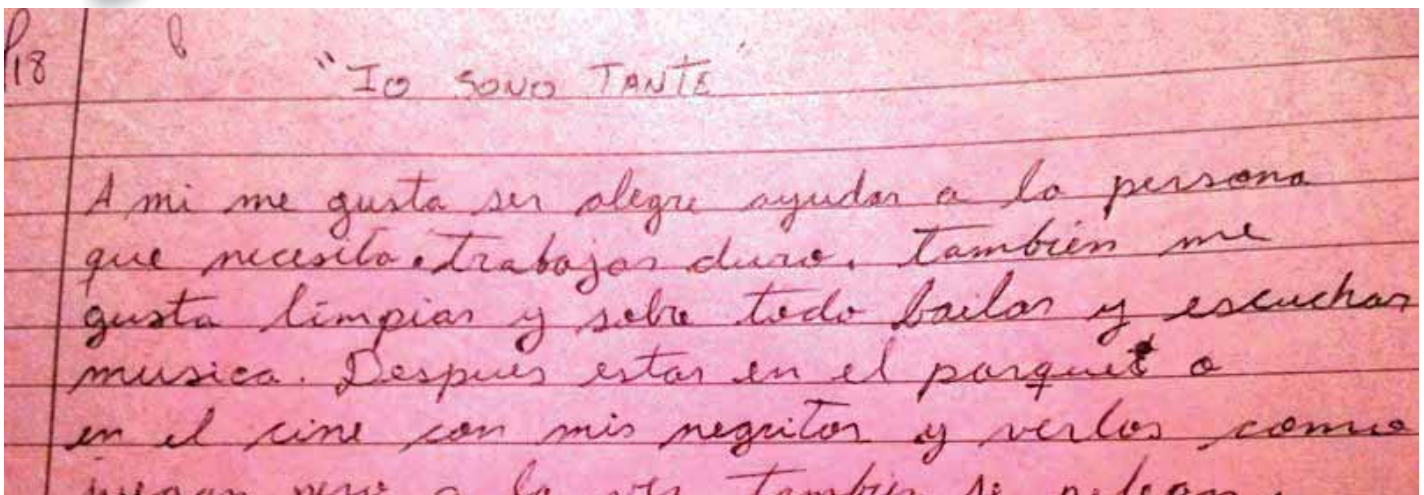 18
"IO SONO TANTE"
A mi me gusta ser alegre ayudar a la persona
que necesita. trabajar duro. también me
gusta limpiar y sobre todo bailar y escuchar
musica. Despues estar en el parque o
en el cine con mis negritos y verlos como
juegan pero a la ves tambien se pelean.